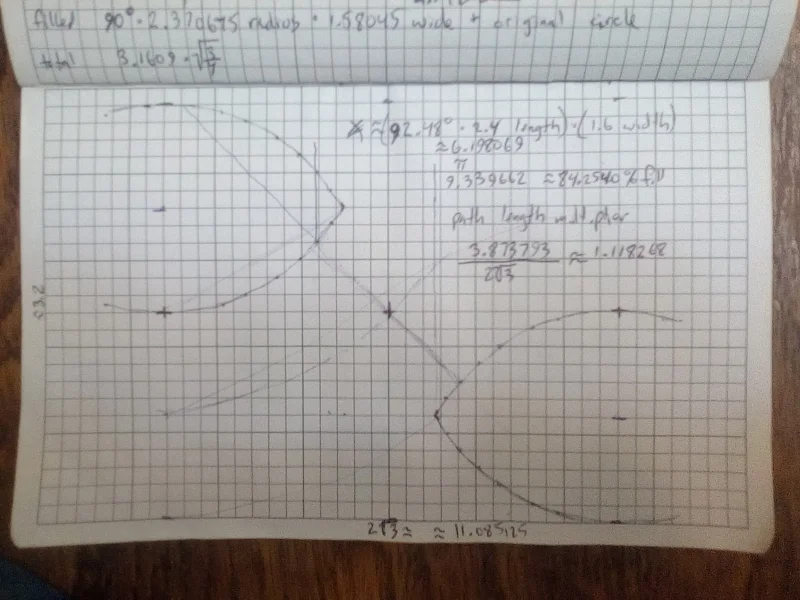 filled 90° · 2.370675 radius · 1.58045 wide + original circle
total 3.1609 ·
≈ (92.48° · 2.4 length) · (1.6 width)
≈ 6.198069
π
9.339662 ≈ 84.2540% fill
path length mult.
3.873793
2√3 ≈ 1.118268
2√3 ≈ ≈ 11.085125